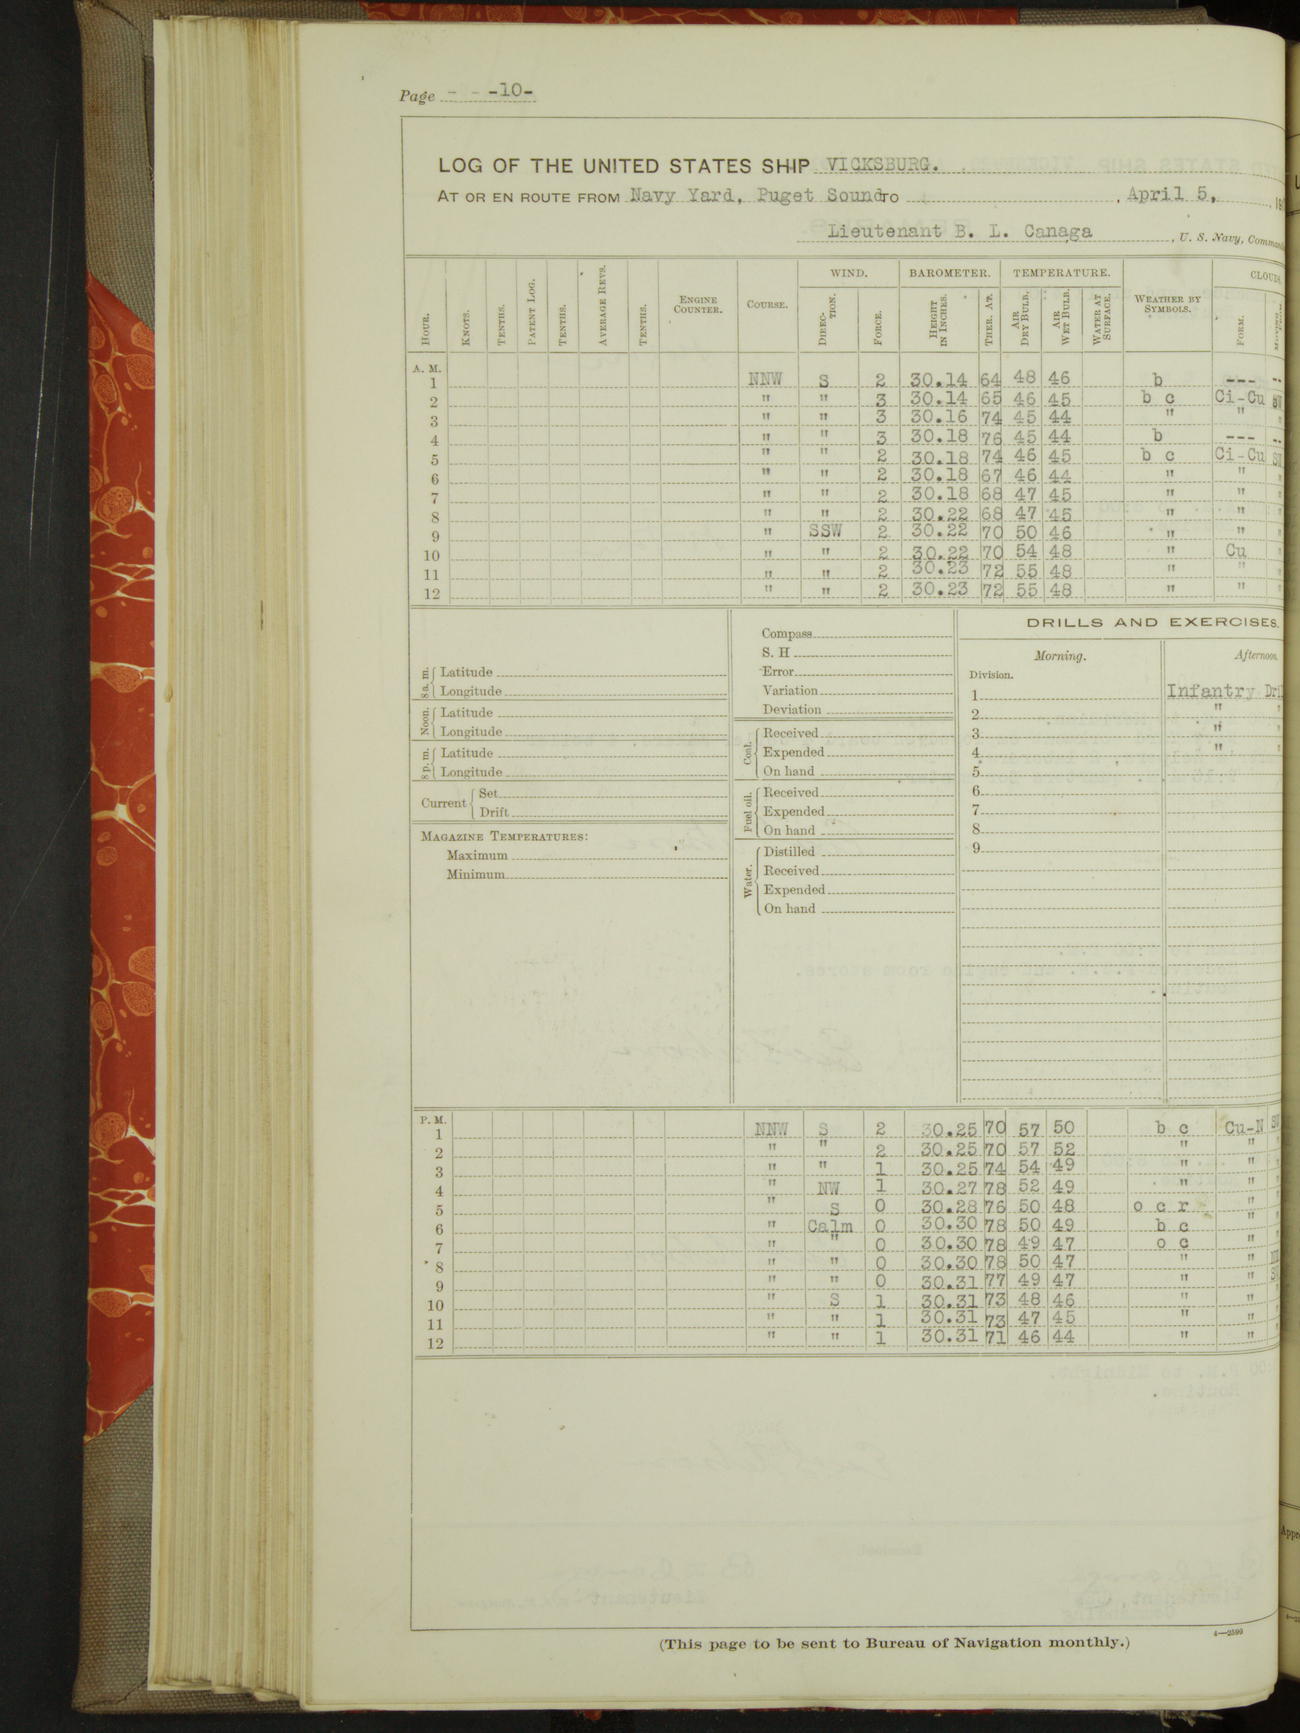 Page - - -10-
LOG OF THE UNITED STATES SHIP VICKSBURG.
AT OR EN ROUTE FROM Navy Yard, Puget Sound TO , April 5, , 19
Lieutenant B. L. Canaga , U. S. Navy,
HOUR. KNOTS. TENTHS. PATENT LOG. TENTHS. AVERAGE REVS. TENTHS. ENGINE COUNTER. COURSE. WIND. DIRECTION. FORCE. BAROMETER. HEIGHT IN INCHES. THER. AT. TEMPERATURE. AIR DRY BULB. AIR WET BULB. WATER AT SURFACE. WEATHER BY SYMBOLS. CLOUDS. FORM.
A. M.
1 NNW S 2 30.14 64 48 46 b --- --
2 " " 3 30.14 65 46 45 b c Ci-Cu SW
3 " " 3 30.16 74 45 44 " " "
4 " " 3 30.18 76 45 44 b --- --
5 " " 2 30.18 74 46 45 b c Ci-Cu SW
6 " " 2 30.18 67 46 44 " " "
7 " " 2 30.18 68 47 45 " " "
8 " " 2 30.22 68 47 45 " " "
9 " SSW 2 30.22 70 50 46 " " "
10 " " 2 30.22 70 54 48 " Cu "
11 " " 2 30.23 72 55 48 " " "
12 " " 2 30.23 72 55 48 " " "
8 a. m. Latitude
Longitude
Noon. Latitude
Longitude
8 p. m. Latitude
Longitude
Current Set
Drift
MAGAZINE TEMPERATURES:
Maximum
Minimum
Compass
S. H
Error
Variation
Deviation
Coal. Received
Expended
On hand
Fuel oil. Received
Expended
On hand
Water. Distilled
Received
Expended
On hand
DRILLS AND EXERCISES.
Morning. Afternoon.
Division.
1 Infantry Dril
2 " "
3 " "
4 " "
5
6
7
8
9
P. M.
1 NNW S 2 30.25 70 57 50 b c Cu-N SW
2 " " 2 30.25 70 57 52 " " "
3 " " 1 30.25 74 54 49 " " "
4 " NW 1 30.27 78 52 49 " " "
5 " S 0 30.28 76 50 48 o c r " "
6 " Calm 0 30.30 78 50 49 b c " "
7 " " 0 30.30 78 49 47 o c "
8 " " 0 30.30 78 50 47 " "
9 " " 0 30.31 77 49 47 " "
10 " S 1 30.31 73 48 46 " " "
11 " " 1 30.31 73 47 45 " " "
12 " " 1 30.31 71 46 44 " " "
(This page to be sent to Bureau of Navigation monthly.)
4—2599